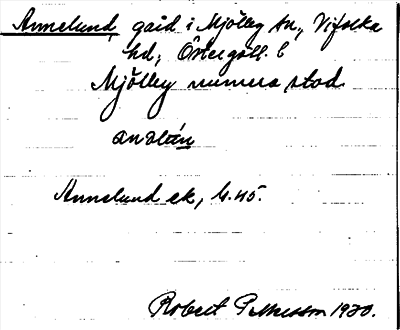 Annelund, gård i Mjölby sn, Vifolka
hd, Östergötl. l
Mjölby numera stad
Annelund ek, 4.45.
Robert Pettersson 1920.